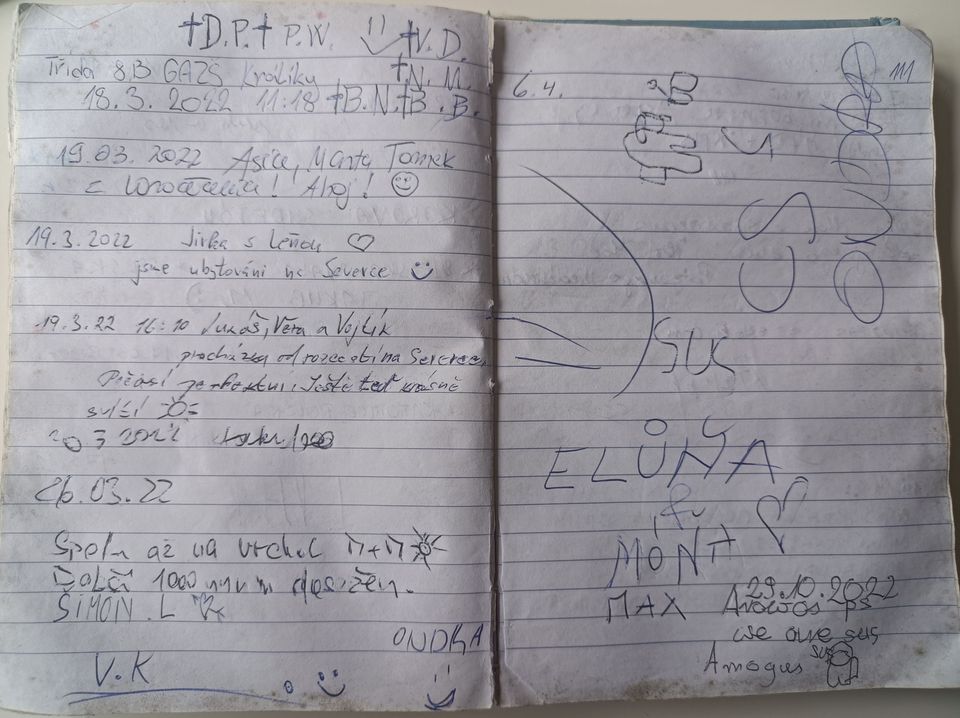 †D.P.† P.W. †V.D.
Třída 8.B GAZS Králíky †N.M.
18.3.2022 11:18 †B.N.†B.B.
19.03.2022 Asice, Marta, Tomek
z ! Ahoj!
19.3.2022 Jirka s Leňou
jsme ubytováni na Severce
19.3.22 16:10 Lukáš, Věra a Vojtík
procházka od na Severce
Počasí perfektní. Ještě teď krásně
svítí
20 3 2022
26.03.22
Spolu až na vrchol M+M
Další 1000 m n m dosažen.
ŠIMON.L
ONDRA
V.K
6.4.
111
ONDRA
SUK
ELŮŇA
&
MÓŇA
MAX 29.10.2022
ps
we are sus
Amogus sus